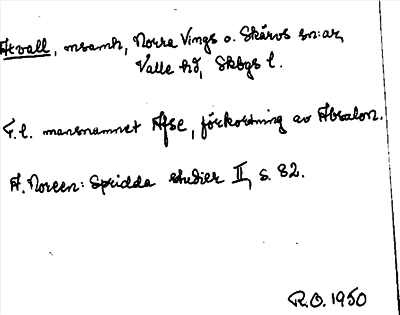 Axvall, msamh, Norra Vings o. Skärvs sn:ar,
Valle hd, Skbgs l.
F.l. mansnamnet Axe, förkortning av Absalon.
A. Noreen: Spridda studier II, s. 82.
R.O. 1950